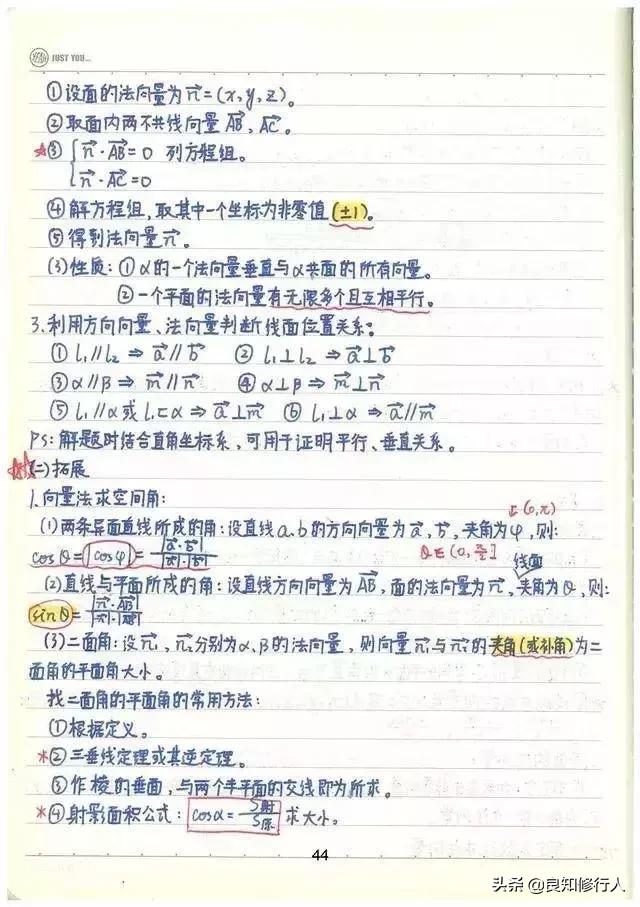 好妞 JUST YOU...
①设面的法向量为n⃗=(x,y,z)。
②取面内两不共线向量AB⃗,AC⃗。
☆③ {n⃗·AB⃗=0 列方程组。
n⃗·AC⃗=0
④解方程组,取其中一个坐标为非零值(±1)。
⑤得到法向量n⃗。
(3)性质:①α的一个法向量垂直与α共面的所有向量。
②一个平面的法向量有无限多个且互相平行。
3.利用方向向量、法向量判断线面位置关系:
①l₁∥l₂⇒a⃗∥b⃗ ②l₁⊥l₂⇒a⃗⊥b⃗
③α∥β⇒m⃗∥n⃗ ④α⊥β⇒m⃗⊥n⃗
⑤l₁∥α或l₁⊂α⇒a⃗⊥m⃗ ⑥l₁⊥α⇒a⃗∥m⃗
PS:解题时结合直角坐标系,可用于证明平行、垂直关系。
☆☆(二)拓展
1.向量法求空间角:
↓(0,π)
(1)两条异面直线所成的角:设直线a、b的方向向量为a⃗,b⃗,夹角为φ,则:
cosθ=|cosφ|=|a⃗·b⃗|/|a⃗|·|b⃗| θ∈(0,π/2]
线面
(2)直线与平面所成的角:设直线方向向量为AB⃗,面的法向量为n⃗,夹角为θ,则:
sinθ=|n⃗·AB⃗|/|n⃗|·|AB⃗|
(3)二面角:设n₁⃗,n₂⃗分别为α、β的法向量,则向量n₁⃗与n₂⃗的夹角(或补角)为二
面角的平面角大小。
找二面角的平面角的常用方法:
①根据定义。
*②三垂线定理或其逆定理。
③作棱的垂面,与两个半平面的交线即为所求。
*④射影面积公式:cosα=S射/S原 求大小。
44
头条@良知修行人